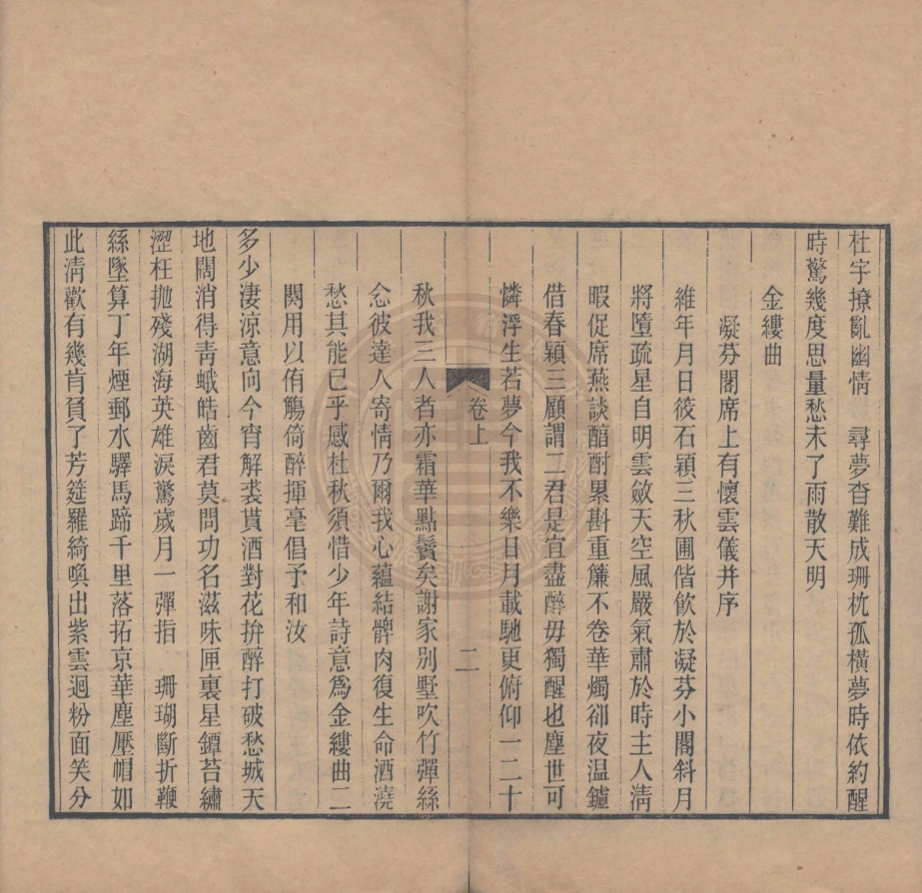 杜宇撩亂幽情　尋夢杳難成珊枕孤橫夢時依約醒
時驚幾度思量愁未了雨散天明
金縷曲
凝芬閣席上有懷雲儀并序
維年月日筱石穎三秋圃偕飲於凝芬小閣斜月
將墮疏星自明雲斂天空風嚴氣肅於時主人淸
暇促席燕談醕酎累斟重簾不卷華燭卻夜温鑪
借春穎三顧謂二君是宜盡醉毋獨醒也塵世可
憐浮生若夢今我不樂日月載馳更俯仰一二十
卷上
二
秋我三人者亦霜華點鬢矣謝家別墅吹竹彈絲
念彼達人寄情乃爾我心蘊結髀肉復生命酒澆
愁其能已乎感杜秋須惜少年詩意爲金縷曲二
闋用以侑觴倚醉揮毫倡予和汝
多少淒涼意向今宵解裘貰酒對花拚醉打破愁城天
地闊消得靑蛾皓齒君莫問功名滋味匣裏星鐔苔繡
澀枉拋殘湖海英雄淚驚歲月一彈指　珊瑚斷折鞭
絲墜算丁年煙郵水驛馬蹄千里落拓京華塵壓帽如
此淸歡有幾肯負了芳筵羅綺喚出紫雲迴粉面笑分